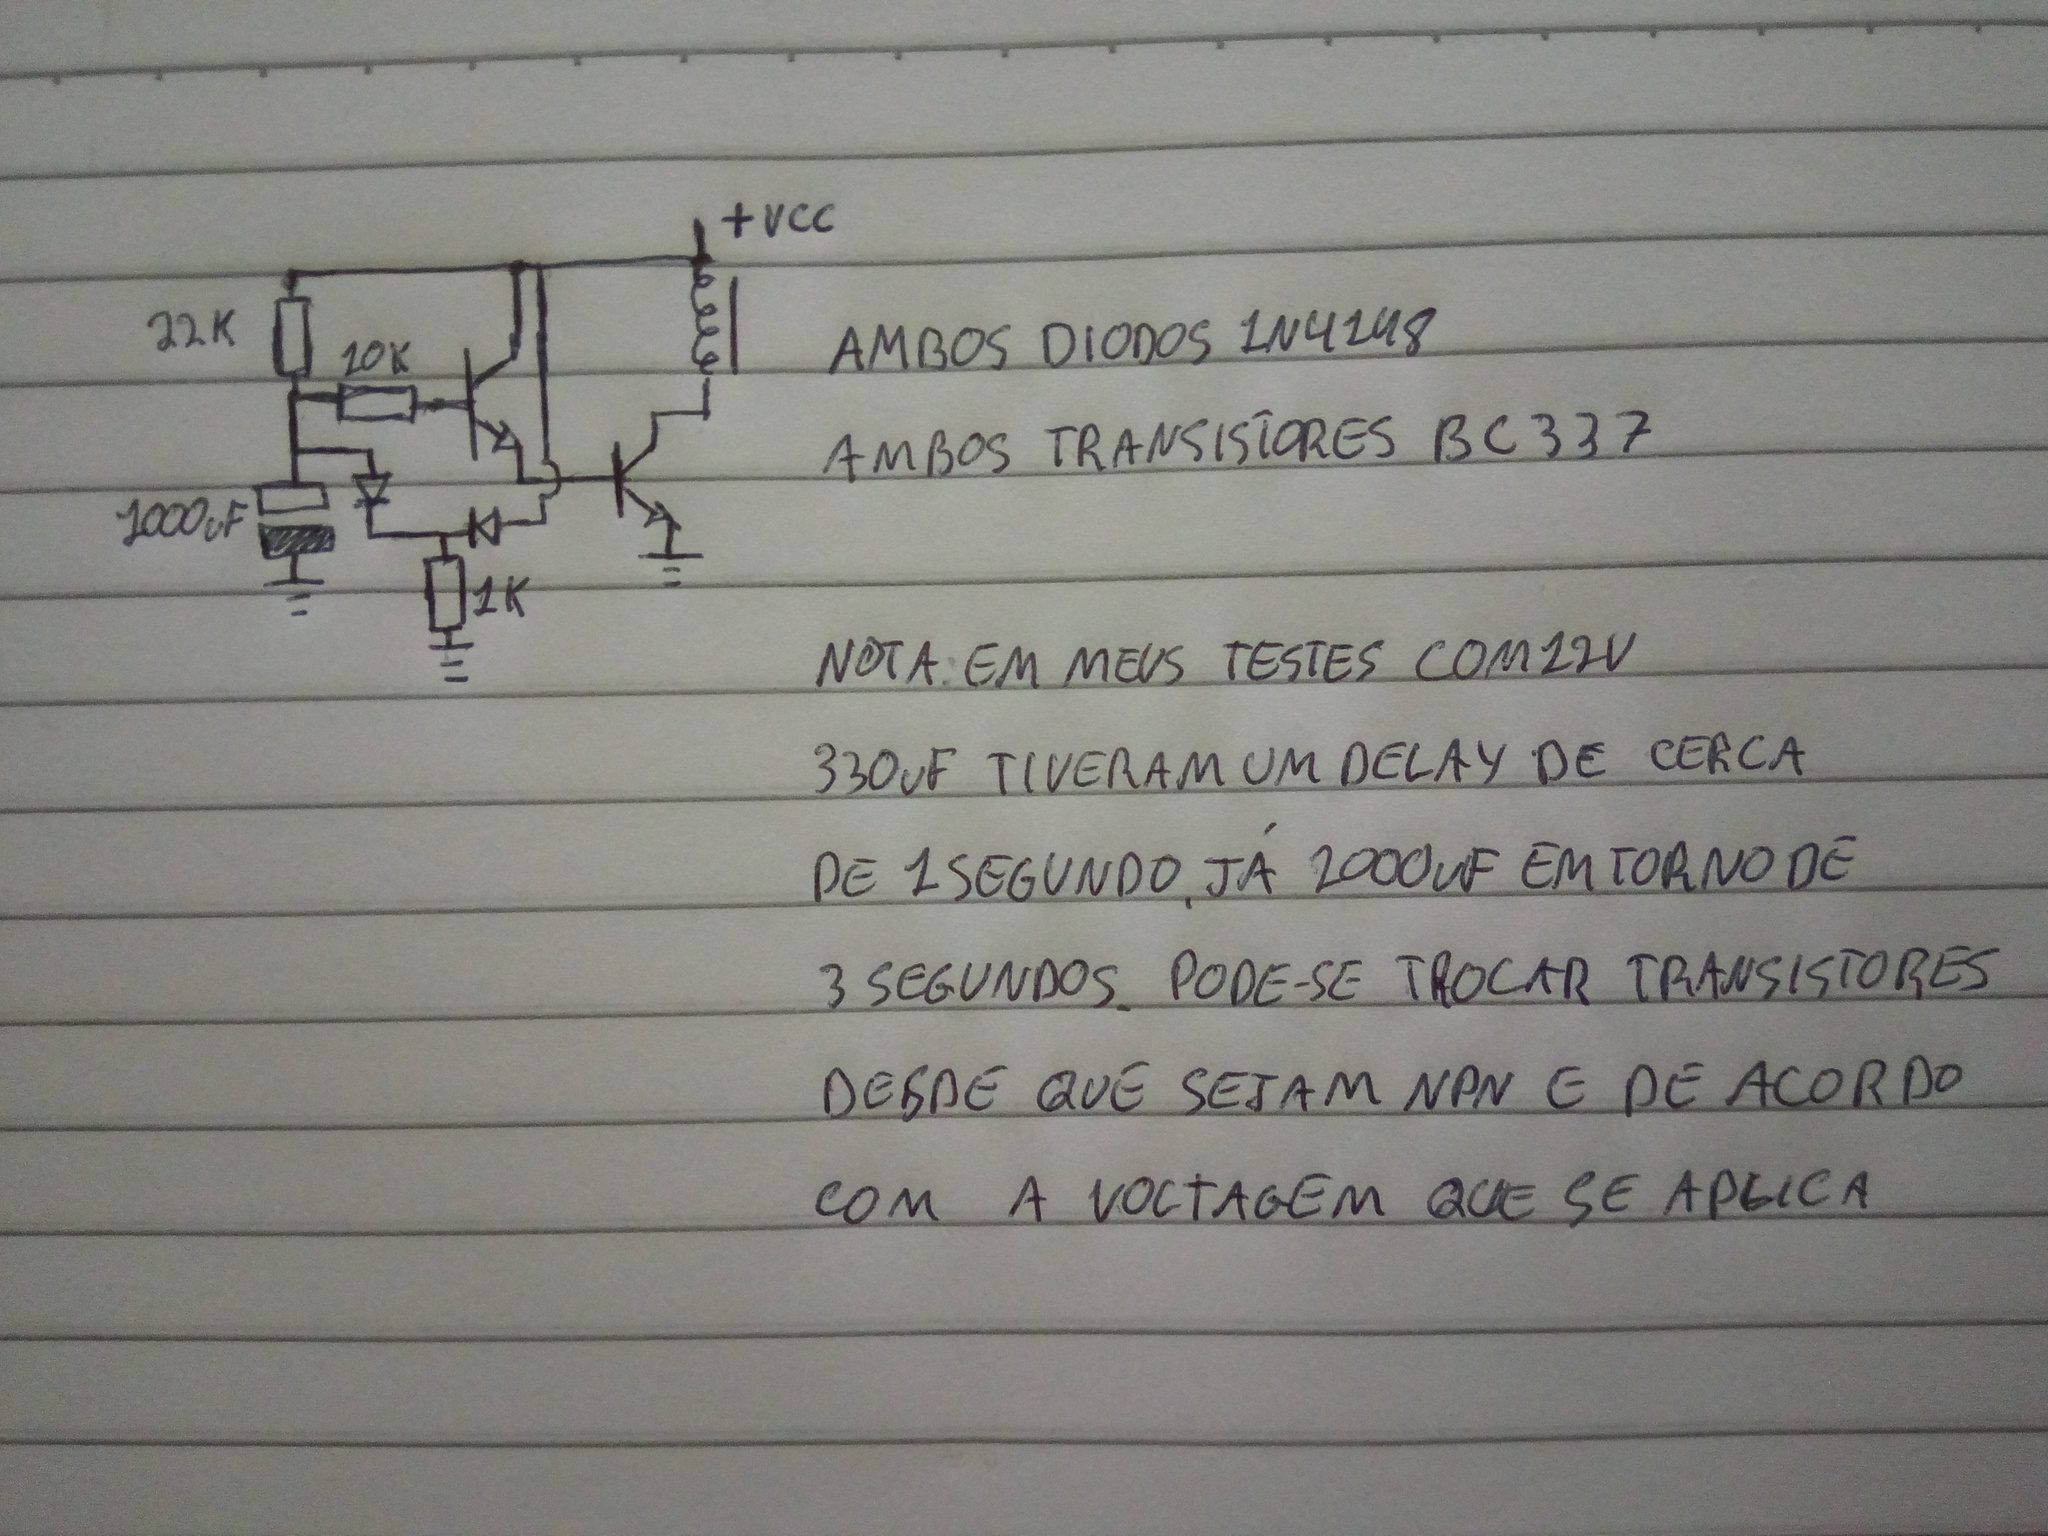 +VCC
22K
10K
1000uF
1K
AMBOS DIODOS 1N4148
AMBOS TRANSISTORES BC337
NOTA: EM MEUS TESTES COM 12V
330uF TIVERAM UM DELAY DE CERCA
DE 1 SEGUNDO, JÁ 1000uF EM TORNO DE
3 SEGUNDOS. PODE-SE TROCAR TRANSISTORES
DESDE QUE SEJAM NPN E DE ACORDO
COM A VOLTAGEM QUE SE APLICA